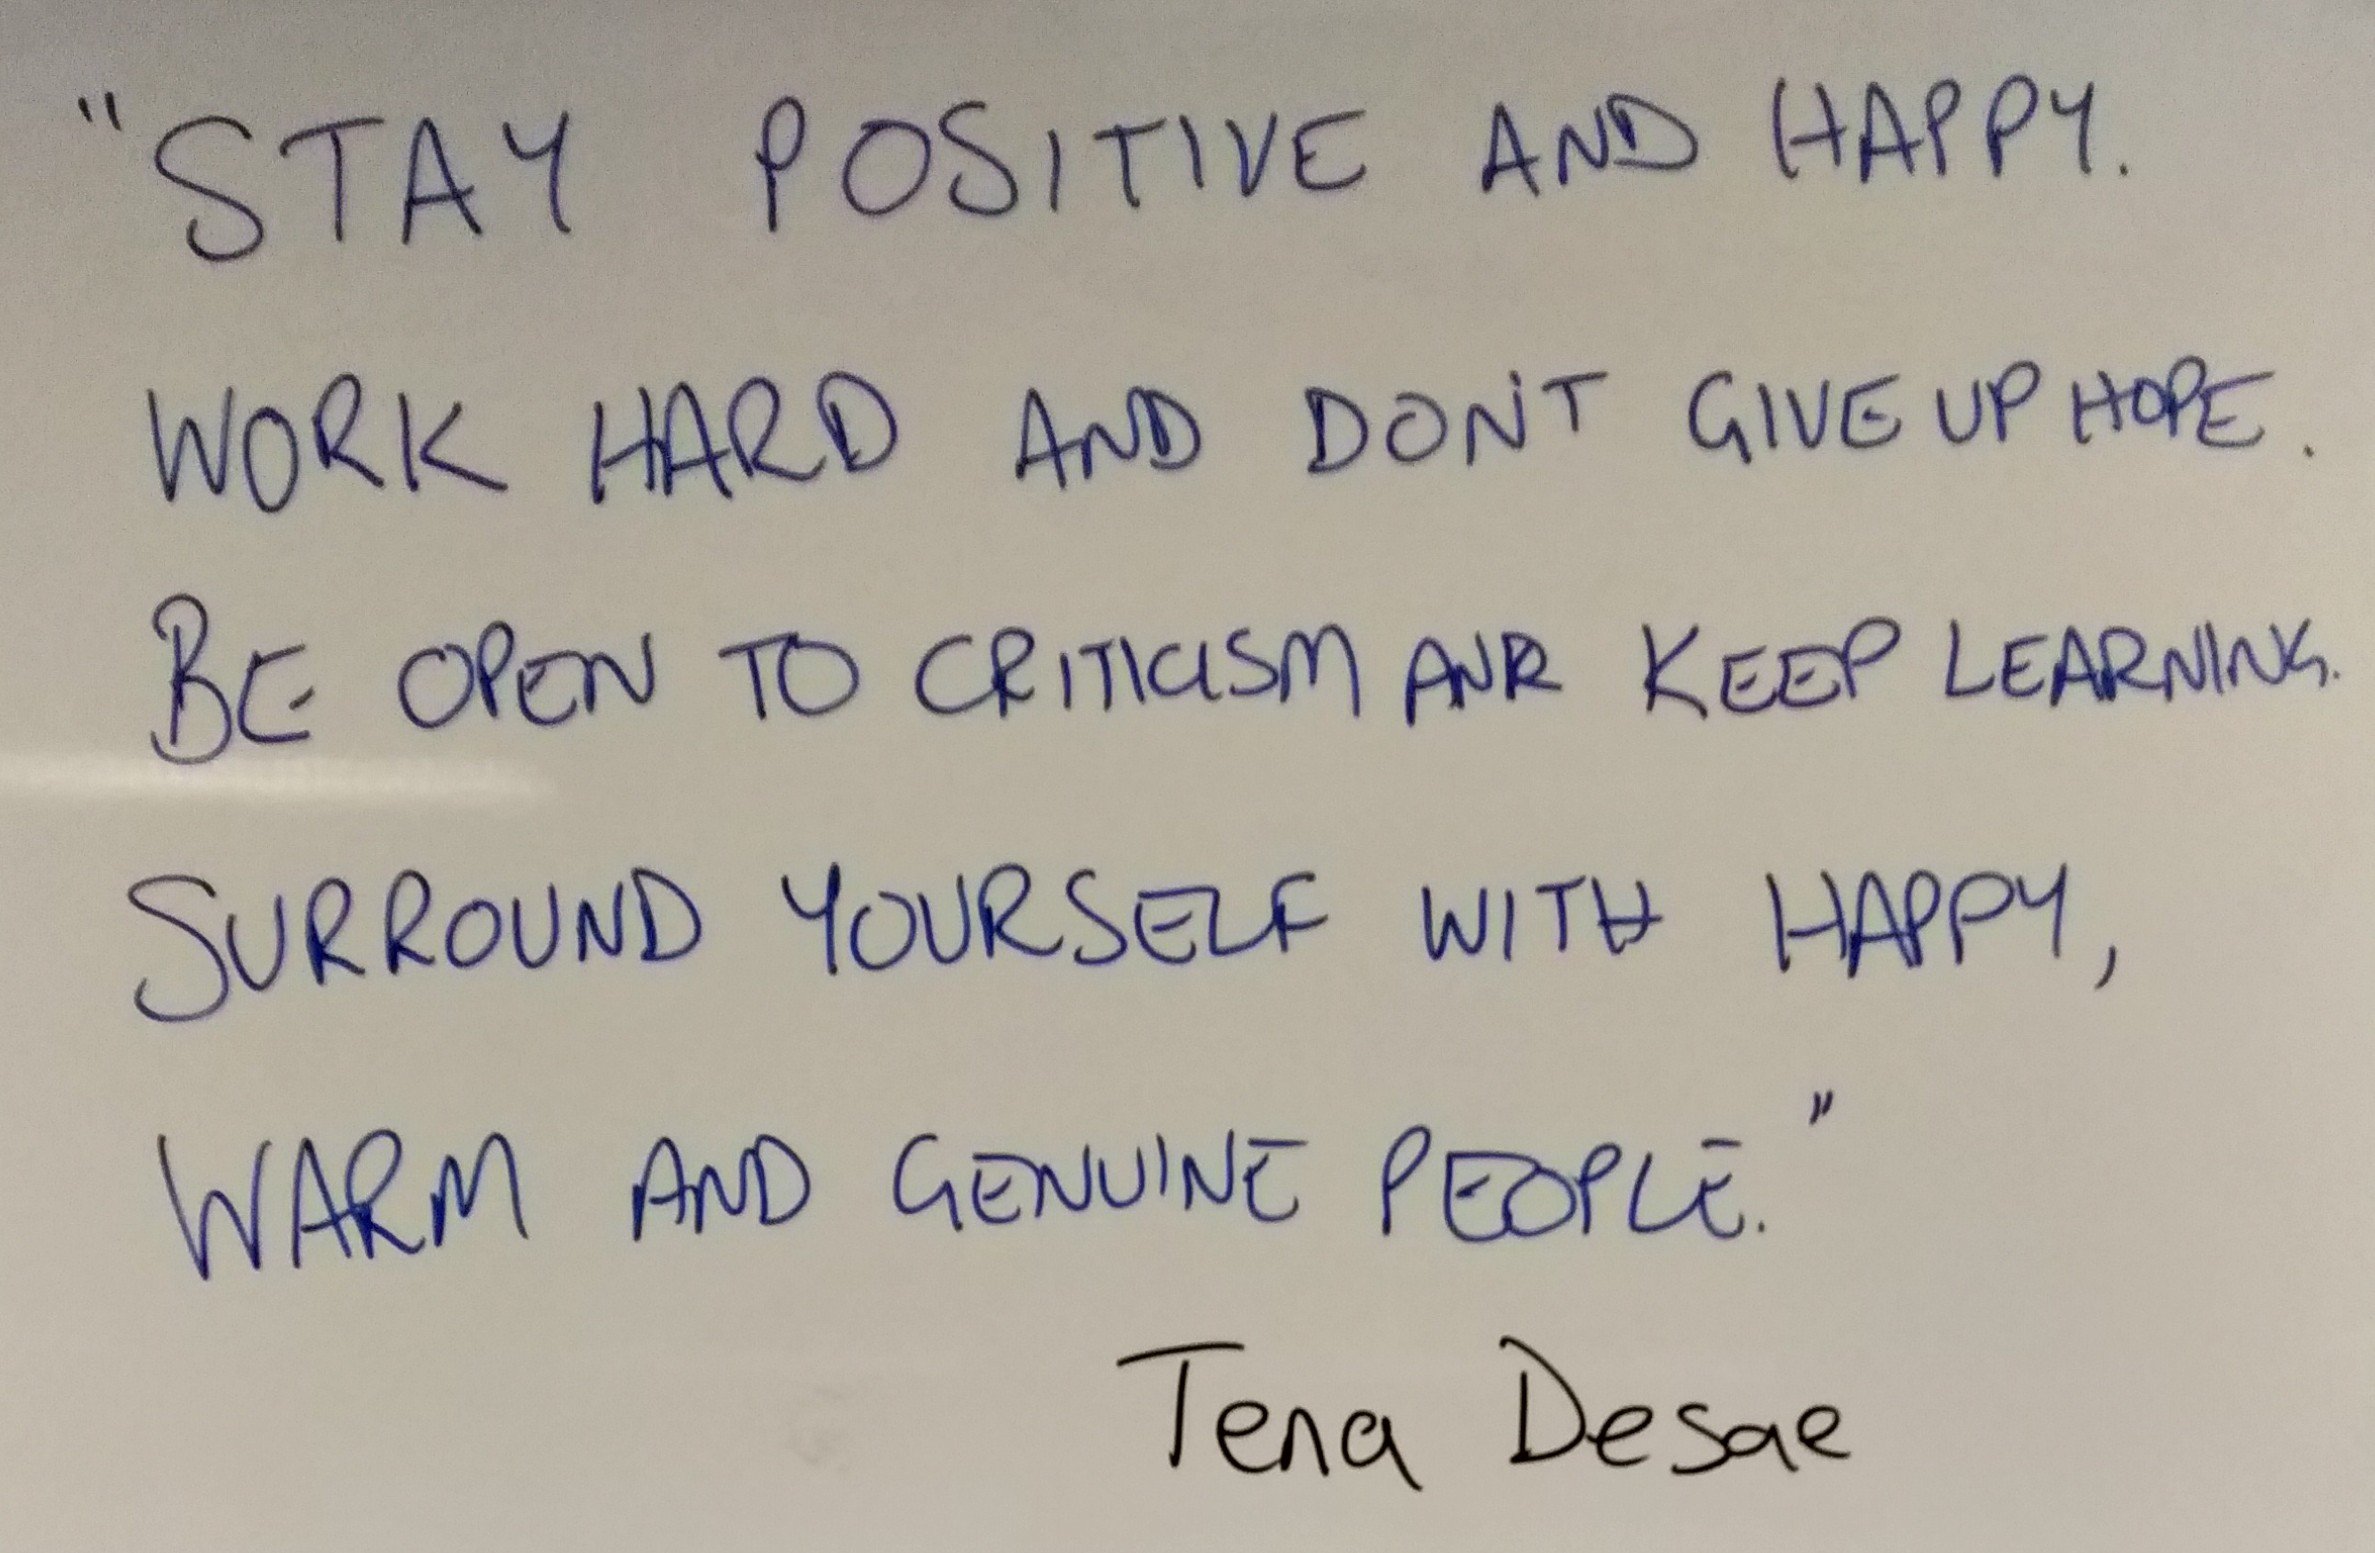 "STAY POSITIVE AND HAPPY.
WORK HARD AND DON'T GIVE UP HOPE.
BE OPEN TO CRITICISM AND KEEP LEARNING.
SURROUND YOURSELF WITH HAPPY,
WARM AND GENUINE PEOPLE."
Tena Desae